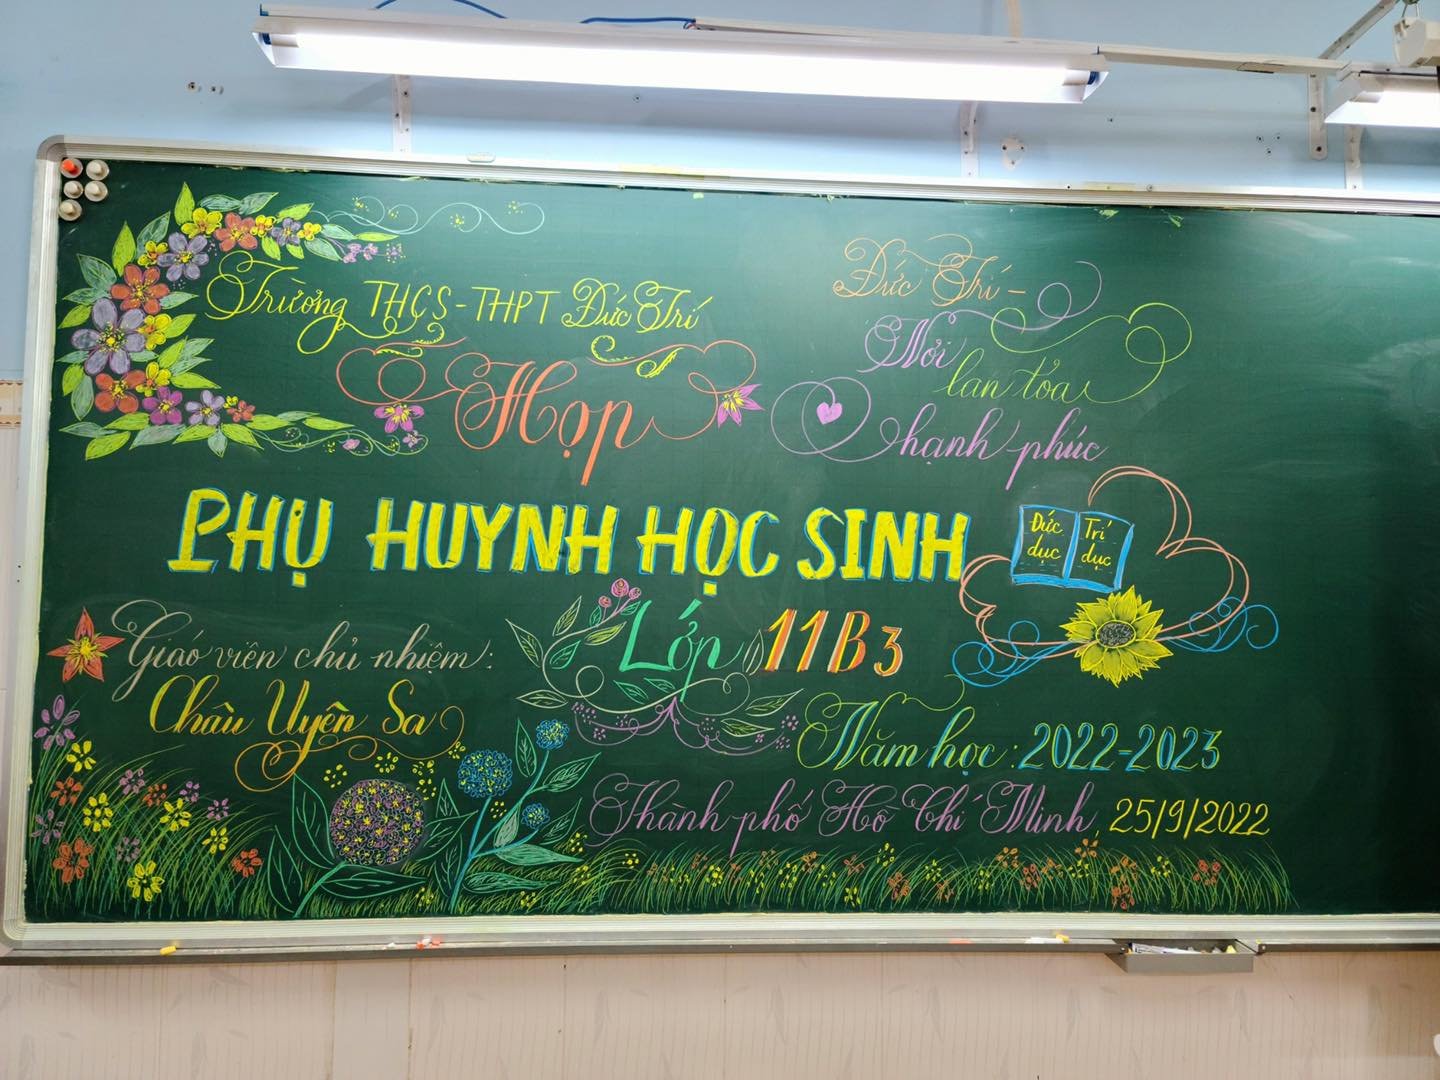 Trường THCS-THPT Đức Trí
Họp
PHỤ HUYNH HỌC SINH
Lớp 11B3
Đức Trí -
Nơi
lan tỏa
hạnh phúc
Đức dục
Trí dục
Giáo viên chủ nhiệm:
Châu Uyên Sa
Năm học: 2022-2023
Thành phố Hồ Chí Minh, 25/9/2022